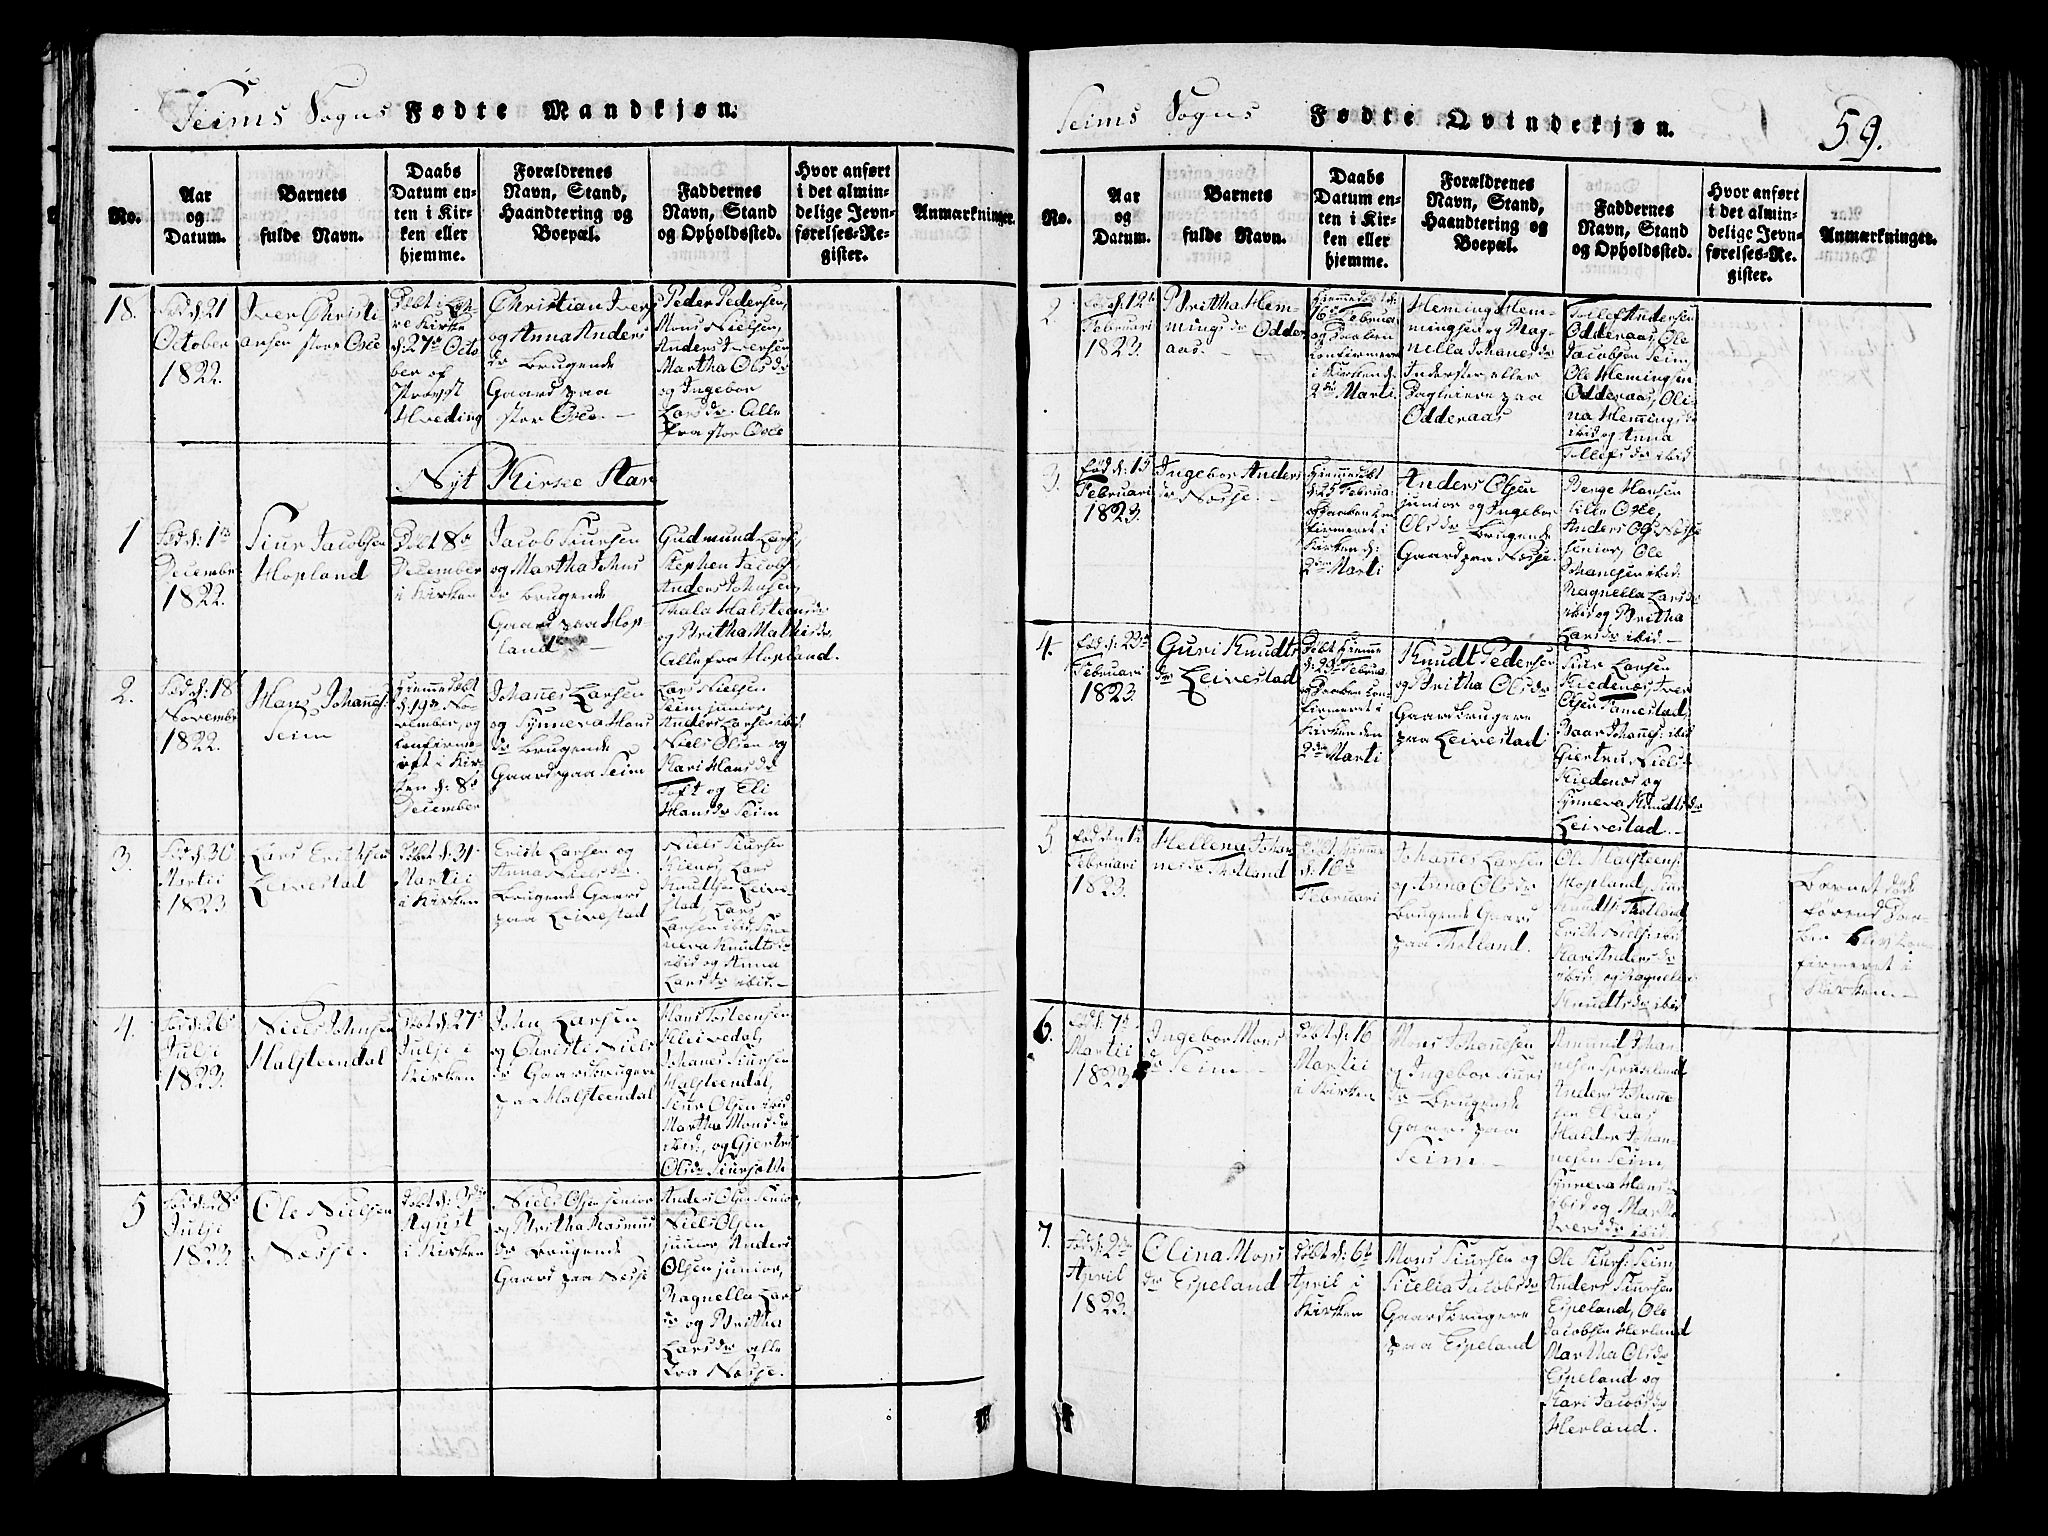 Seims Sogns Fødte Mandkjøn.
No.
Aar
og
Datum.
Barnets
fulde Navn.
Daabs
Datum en-
ten i Kir-
ken eller
hjemme.
Forældrenes
Navn, Stand,
Haandtering og
Boepæl.
Faddernes
Navn, Stand
og Opholdssted.
Hvor anført
i det almin-
delige Jevn-
førelses-Re-
gister.
Anmærkninger.
18.
Fød d: 21
October
1822.
Iver Christi
ansen store Osee
Døbt i
re Kirke
d: 27de Octo
ber af
Provst
Hveding
Christian Ivers
og Anna Anders
dr brugende
Gaard paa
stor Osee. -
Peder Pedersen,
Mons Nielsen,
Anders Iversen
Martha Olsdr
og Ingebor
Larsdr Alle
fra stor Osee
Nyt Kirke Aar
1
Fød d: 1ste
December
1822.
Siur Jacobsen
Hopland
Døbt 8de
December
i Kirken
Jacob Siursen
og Martha Johns
dr brugende
Gaard paa Hop-
land -
Gudmund Lars:,
Stephen Jacobs:
Anders Johnsen,
Thala Halsteensdr
og Britha Mathisdr
Alle fra Hopland.
2.
Fød d: 18
November
1822.
Hans Johannes:
Seim
Hiemmedøbt
d: 19de No-
vember, og
confirme-
ret i Kir-
ken d: 8de
December
Johannes Larsen
og Synneva Hans
dr brugende
Gaard paa Seim
Lars Nielsen
Seim junior,
Anders Larsen ibid
Niels Olsen og
Kari Hansdr
Toft og Eli
Hansdr Seim
3.
Fød d: 30
Martii
1823
Lars Erichsen
Leivestad
Døbt d: 31
Martii
i Kirken
Erich Larsen og
Anna Nielsdr
brugende Gaard
paa Leivestad
Niels Siursen
Kienæs, Lars
Knudtsen Leive-
stad, Lars
Larsen ibid, Syn-
neva Knudtsdr
ibid og Anna
Larsdr ibid. -
4.
Fød d: 26de
Julji
1823.
Niels Johnsen
Halsteendal
Døbt d: 27de
Julji i
Kirken
John Larsen
og Christi Niels
dr Gaardbrugere
paa Halsteendal
Hans Torsteensen
Kleivedal,
Johanes Siursen
Halsteendal,
Siur Olsen ibid
Martha Monsdr
ibid:, og Giertru
Olsdr Siursætte
5
Fød d: 28de
Julji
1823.
Ole Nielsen
Næsse.
Døbt d: 3die
Agust
i Kirken
Niels Olsen senior
og Britha Rasmus
dr brugende
Gaard paa Næsse
Anders Olsen senior,
Niels Olsen
junior, Anders
Olsen junior,
Ragnella Lars
dr og Britha
Larsdr alle
fra Næsse.
Seims Sogns Fødte Qvindekjøn.
59.
No.
Aar
og
Datum.
Barnets
fulde Navn.
Daabs
Datum en-
ten i Kir-
ken eller
hjemme.
Forældrenes
Navn, Stand,
Haandtering og
Boepæl.
Faddernes
Navn, Stand
og Opholdssted.
Hvor anført
i det almin-
delige Jevn-
førelses-Re-
gister.
Anmærkninger.
2
Fød d: 12te
Februari
1823.
Britha Hem-
mings dr Odder
aas. -
Hiemmedøbt d:
16de Februar
og Daaben
confirmeret
i Kirken d:
2den Marti
Heming Hem-
mingsen og Rag-
nella Johanesdr
Inderster eller
Dagleiere paa
Odderaas
Tollef Andersen
Odderaas, Ole
Jacobsen Seim,
Ole Hemingsen
Odderaas, Oli-
na Hemmingsdr
ibid og Anna
Tollefsdr ibid
3.
Fød d: 15
Februari
1823.
Ingebor Anders
dr Næsse. -
Hiemmedøbt
d: 25 Februa:
og Daaben con
firmeret i
Kirken d:
2den Marti
Anders Olsen
junior og Ingebor
Olsdr brugende
Gaard paa Næsse
Berge Hansen
lille Osee,
Anders Ols: Næsse
senior, Ole
Johanesen ibid:
Ragnella Larsdr
ibid og Britha
Larsdr ibid. -
4.
Fød d: 23de
Februari
1823.
Guri Knudts
dr Leivestad
Døbt hiemme
d: 23de Februa
og Daaben con
firmeret i
Kirken den
2den Marti
Knudt Pedersen
og Britha Olsdr
Gaardbrugere
paa Leivestad
Siur Larsen
Kiedenæs, Iver
Olsen Famestad,
Baar Johannes: ibid
Giertru Nielsdr
Kiedenæs og
Synneva Knudtsdr
Leivestad. -
5
Fød den 12
Februari
1823.
Hellena Johan
nesdr Totland
Døbt hiemme
d: 16de
Februari
Johannes Larsen
og Anna Olsdr
brugende Gaard
paa Totland.
Ole Halsteens:
Hopland, Siur
Knudts: Totland
Erich Niels: ibid
Kari Andersdr
ibid: og Ragnella
Knudtsdr ibid
Barnet døde
førend Daa-
ben blev con-
firmeret i
Kirken. -
6.
Fød d: 7de
Martii
1823
Ingebor Mons
dr Seim -
Døbt d: 16
Martii
i Kirken
Mons Johannesen
og Ingebor Siurs
dr brugende
Gaard paa
Seim -
Amund Johan-
nesen
Anders Johanne-
sen Elsaas
Haldor Johan-
nesen Seim,
Synneva Hansdr
ibid og Martha
Iversdr ibid
7.
Fød d: 2den
April
1823.
Olina Mons
dr Espeland
Døbt d: 6te
April i
Kirken
Mons Siursen og
Sicelia Jacobsdr
Gaardbrugere
paa Espeland
Ole Siurs: Seim
Anders Siursen
Espeland, Ole
Jacobsen Herland
Martha Olsdr
Espeland og
Kari Jacobsdr
Herland.